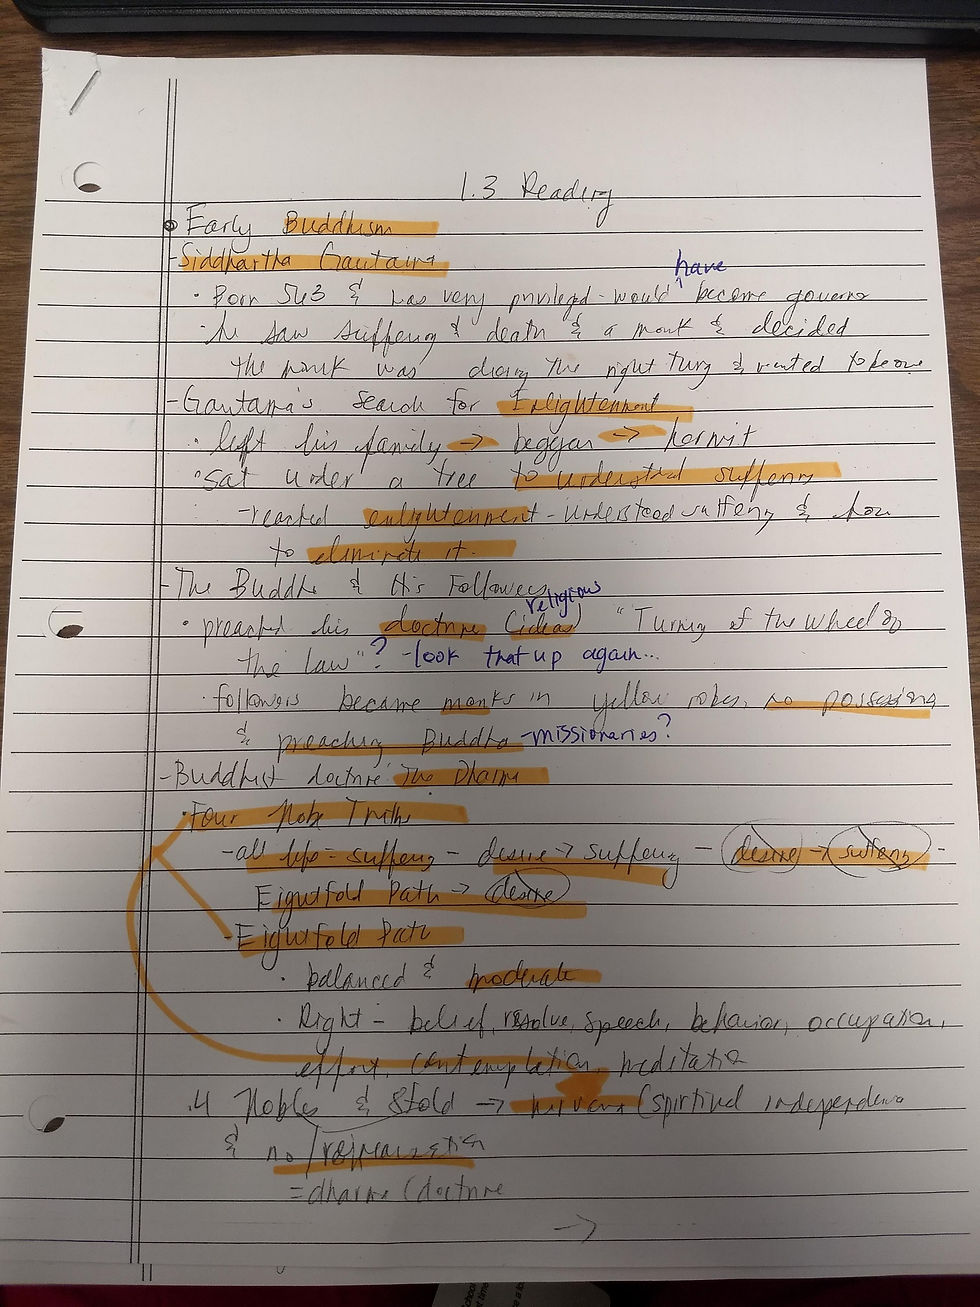 1.3 Reading
Early Buddhism
- Siddhartha Gautama
have
• Born 563 & was very privileged - would ^ become governor
• he saw suffering & death & a monk & decided
the monk was doing the right thing & wanted to become
- Gautama's search for Enlightenment
• left his family → beggar → hermit
• sat under a tree to understand suffering
- reached enlightenment - understood suffering & how
to eliminate it.
- The Buddha & His Followers
religious
• preached his doctrine (ideas) "Turning of the wheel of
the law"? - look that up again...
• followers became monks in yellow robes, no possessions
& preaching Buddha - missionaries?
- Buddhist doctrine: The Dharma
• Four Noble Truths
- all life = suffering - desire → suffering - desire → suffering -
Eightfold Path → desire
- Eightfold Path
• balanced & moderate
• Right - belief, resolve, speech, behavior, occupation,
effort, contemplation, meditation
• 4 Nobles & 8fold → nirvana (spiritual independence
& no reincarnation
= dharma (doctrine
→